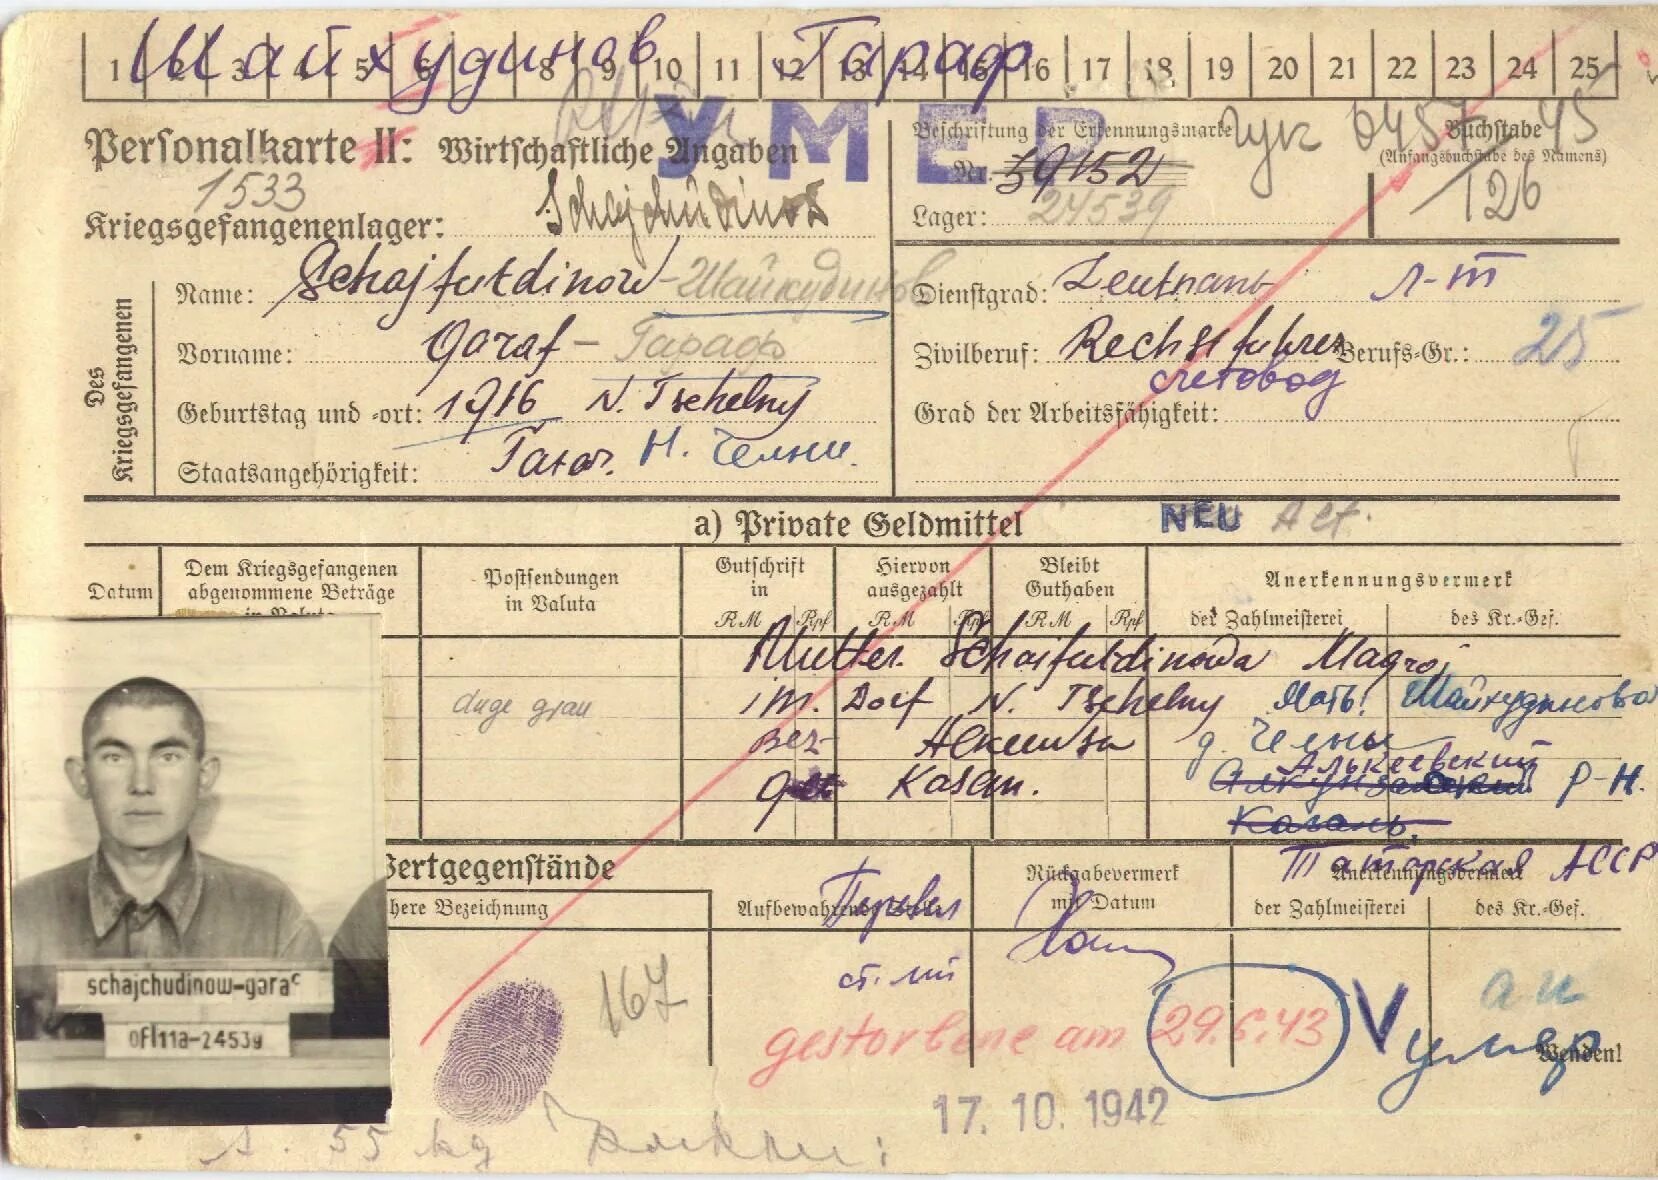 Шайхудинов Гараф
1 2 3 4 5 6 7 8 9 10 11 12 13 14 15 16 17 18 19 20 21 22 23 24 25
УМЕР
Personalkarte II: Wirtschaftliche Angaben
Beschriftung der Erkennungsmarke
Nr. 39152
Buchstabe
(Anfangsbuchstabe des Namens)
45
126
1533
Kriegsgefangenenlager: Schajchudinow
Lager: 24539
Des Kriegsgefangenen
Name: Schajfutdinow - Шайхудинов
Dienstgrad: Leutnant л-т
Vorname: Garaf - Гараф
Zivilberuf: Rechsfuhrer Berufs-Gr.: 25
счетовод
Geburtstag und -ort: 1916 N. Tschelny
Grad der Arbeitsfähigkeit:
Staatsangehörigkeit: Татар. Н. Челни.
a) Private Geldmittel NEU
Datum
Dem Kriegsgefangenen abgenommene Beträge
in Valuta
Postsendungen
in Valuta
Gutschrift
in
RM Rpf
Hiervon
ausgezahlt
RM Rpf
Bleibt
Guthaben
RM Rpf
Anerkennungsvermerk
der Zahlmeisterei des Kr.-Gef.
Mutter. Schaifutdinowa
im. Dorf N. Tschelny Мать: Шайхудинова
auge grau
Bez- д. Челны
Алькеевский
Р-Н.
Kasan.
Казань
Татарская АССР
Wertgegenstände
here Bezeichnung
Rückgabevermerk
mit Datum
Anerkennungsvermerk
der Zahlmeisterei des Kr.-Gef.
Перевел
ст. л-т
schajchudinow-garaf
ofl11a-24539
167
gestorbene am 29.6.43
V
умер
Wenden!
17. 10. 1942
55 kg